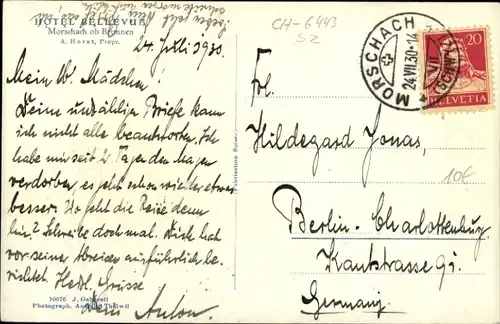 HOTEL BELLEVUE
Morschach ob Brunnen
A. Horat, Propr.
24. Juli 1930.
Mein lb. Mädchen!
Deine unzähligen Briefe kann
ich nicht alle beantworten. Ich
habe mir seit 2 Tagen den Magen
verdorben, es geht schon wieder etwas
besser. Wo geht die Reise denn
hin? Schreibe doch mal. Dick hat
vor seiner Abreise ausführlich be-
richtet. Herzl. Grüsse
Dein Anton.
10076 J. Gaberell
Photograph. Thalwil
CH-6443
SZ
MORSCHACH
24.VII.30-14
20
HELVETIA
Frl.
Hildegard Jonas,
Berlin-Charlottenburg
Kantstrasse 95.
Germany.
10€